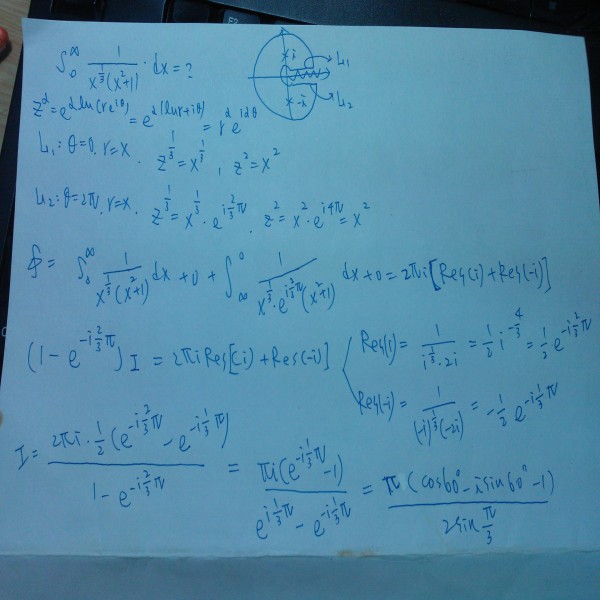 ∫₀^∞ 1/(x^(1/3)(x²+1)) · dx = ?
i
-i
L₁
L₂
z^α = e^(αln(re^(iθ))) = e^(α(lnr+iθ)) = r^α e^(iαθ)
L₁: θ=0, r=x. z^(1/3) = x^(1/3), z² = x²
L₂: θ=2π, r=x. z^(1/3) = x^(1/3)·e^(i(2/3)π). z² = x²·e^(i4π) = x²
∮ = ∫₀^∞ 1/(x^(1/3)(x²+1)) dx + 0 + ∫_∞^0 1/(x^(1/3)·e^(i(2/3)π)(x²+1)) dx + 0 = 2πi[Res(i)+Res(-i)]
(1 - e^(-i(2/3)π)) I = 2πi Res[(i)+Res(-i)]
Res(i) = 1/(i^(1/3)·2i) = (1/2) i^(-4/3) = (1/2) e^(-i(2/3)π)
Res(-i) = 1/((-i)^(1/3)(-2i)) = -(1/2) e^(-i(1/3)π)
I = 2πi·(1/2)(e^(-i(2/3)π) - e^(-i(1/3)π)) / (1 - e^(-i(2/3)π)) = πi(e^(-i(1/3)π) - 1) / (e^(i(1/3)π) - e^(-i(1/3)π)) = π(cos60° - isin60° - 1) / (2sin(π/3))